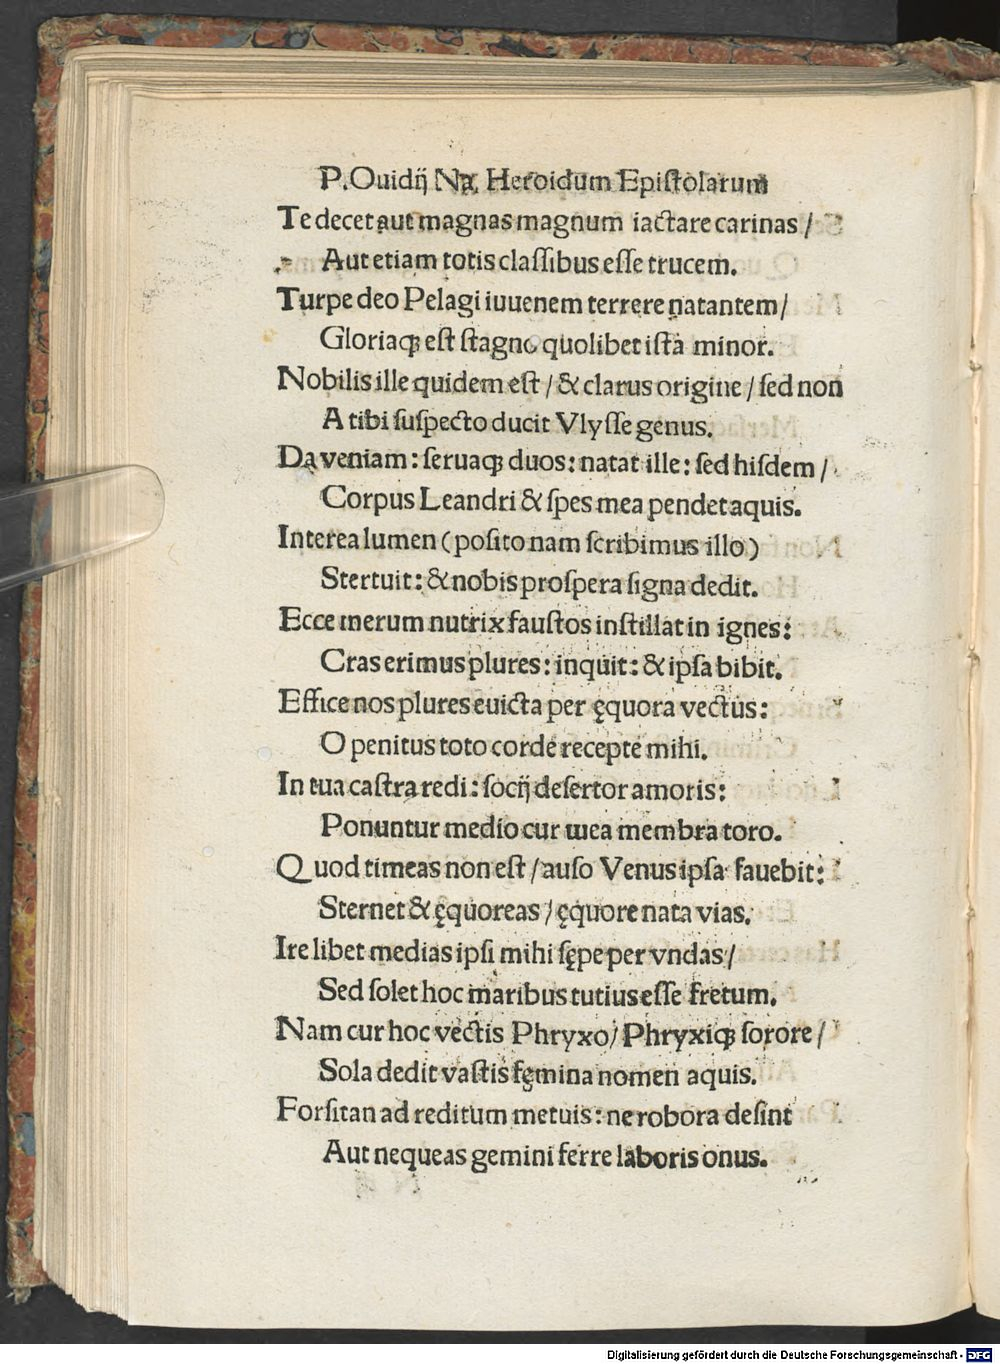 P. Ouidij Na. Heroidum Epistolarum
Te decet aut magnas magnum iactare carinas /
Aut etiam totis classibus esse trucem.
Turpe deo Pelagi iuuenem terrere natantem /
Gloriaqꝫ est stagno quolibet ista minor.
Nobilis ille quidem est / & clarus origine / sed non
A tibi suspecto ducit Vlysse genus.
Da veniam: seruaqꝫ duos: natat ille: sed hisdem /
Corpus Leandri & spes mea pendet aquis.
Interea lumen (posito nam scribimus illo)
Stertuit: & nobis prospera signa dedit.
Ecce merum nutrix faustos instillat in ignes:
Cras erimus plures: inquit: & ipsa bibit.
Effice nos plures euicta per ęquora vectus:
O penitus toto corde recepte mihi.
In tua castra redi: socij desertor amoris:
Ponuntur medio cur mea membra toro.
Quod timeas non est / auso Venus ipsa fauebit:
Sternet & ęquoreas / ęquore nata vias.
Ire libet medias ipsi mihi sępe per vndas /
Sed solet hoc maribus tutius esse fretum.
Nam cur hoc vectis Phryxo / Phryxiqꝫ sorore /
Sola dedit vastis fęmina nomen aquis.
Forsitan ad reditum metuis: ne robora desint
Aut nequeas gemini ferre laboris onus.
Digitalisierung gefördert durch die Deutsche Forschungsgemeinschaft - DFG